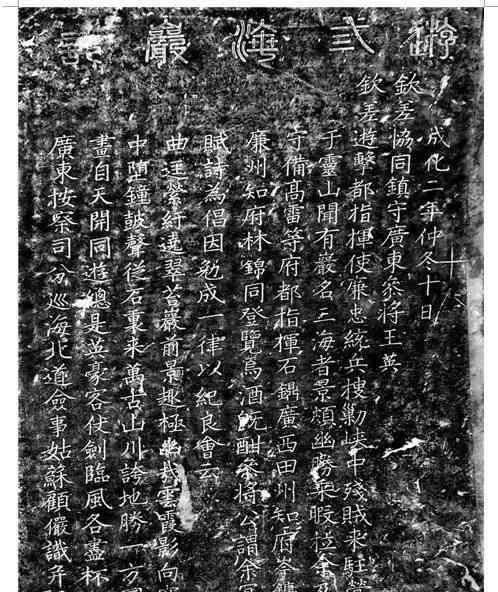 游三海巖記
成化二年仲冬十日
欽差協同鎮守廣東叅將王英
欽差遊擊都指揮使㢘忠統兵搜勦峽中殘賊來駐營
于靈山聞有巖名三海者景頗幽勝乘暇徃
守備高雷等府都指揮石鐈廣西田州知府岑鏞
㢘州知府林錦同登覽焉酒既酣叅將公謂余
賦詩為倡因勉成一律以紀良會云
曲逕縈紆遶翠苔巖前景趣極幽哉雲霞影向
中墮鐘皷聲從石裏来萬古山川誇地勝一方
畵自天開同遊總是英豪客仗劍臨風各盡杯
廣東按察司分巡海北道僉事姑蘇顧儼識弁